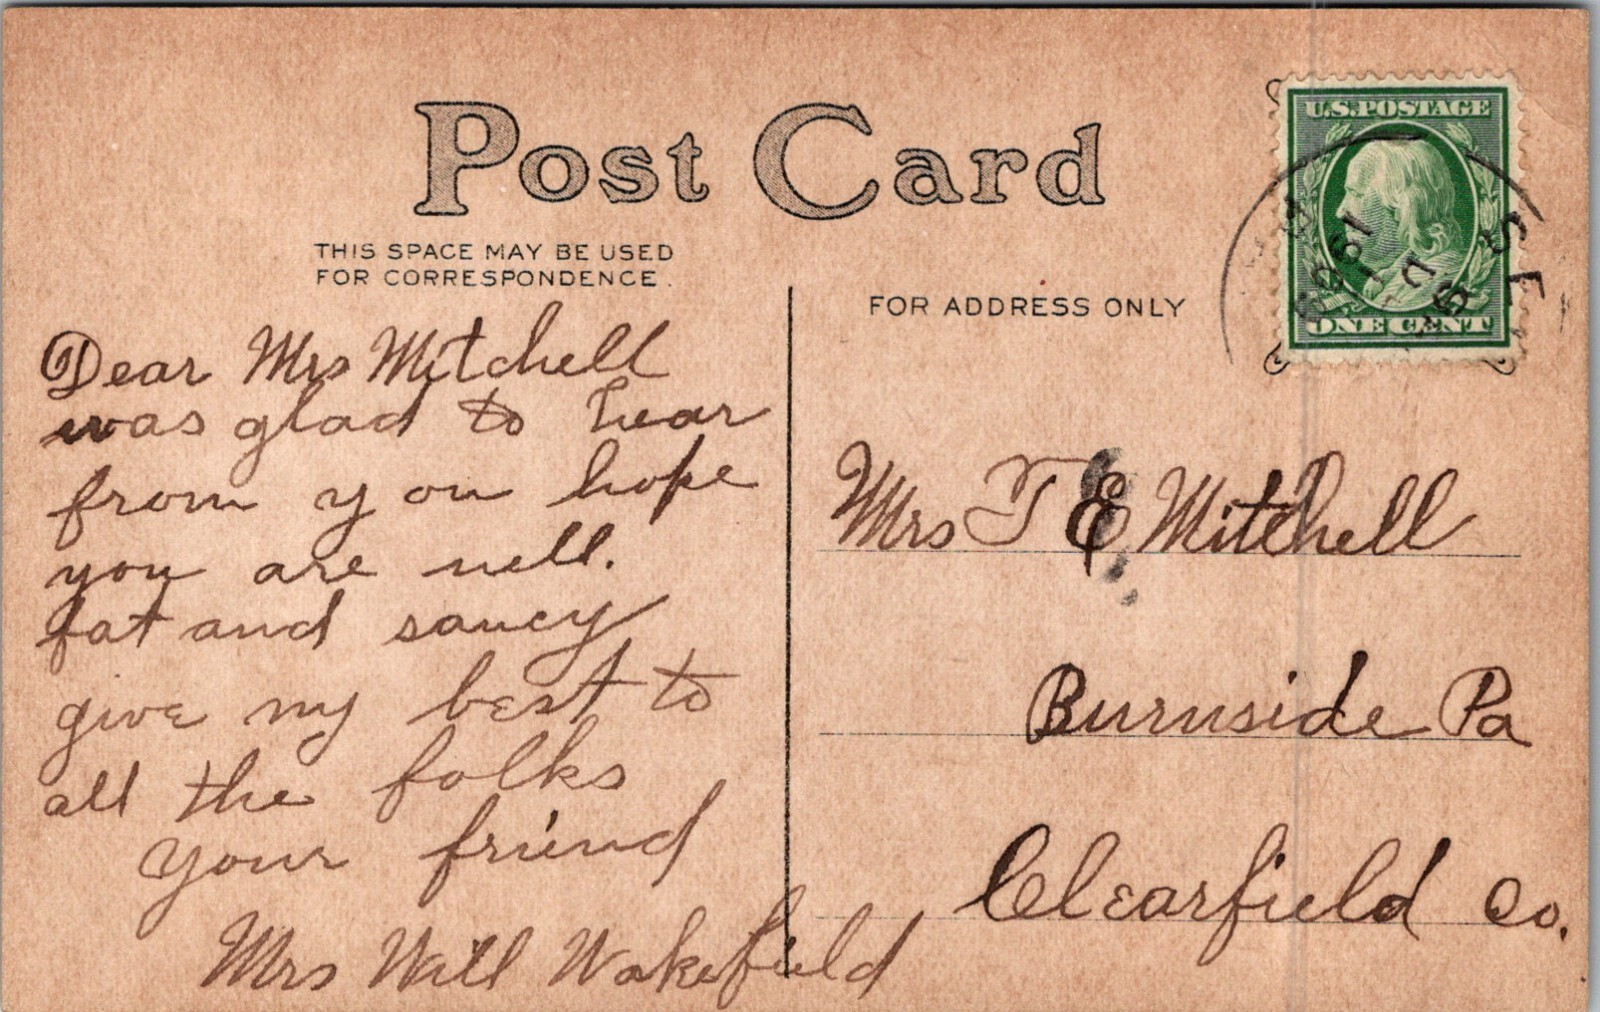 Post Card
THIS SPACE MAY BE USED
FOR CORRESPONDENCE.
FOR ADDRESS ONLY
U.S. POSTAGE
ONE CENT
Dear Mrs Mitchell
was glad to hear
from you hope
you are well.
fat and saucy
give my best to
all the folks
your friend
Mrs Will Wakefield
Mrs T E Mitchell
Burnside Pa
Clearfield Co.